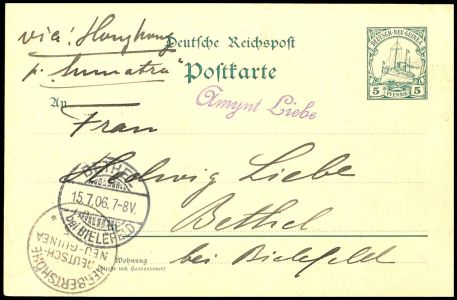 via: Hongkong
p. "Sumatra"
Deutsche Reichspost
Postkarte
DEUTSCH-NEU-GUINEA
5 PFENNIG 5
An
Amynt Liebe
Frau
Hedwig Liebe
Bethel
bei Bielefeld
Wohnung
(Straße und Hausnummer)
BETHEL
15.7.06. 7-8V.
bei BIELEFELD
HERBERTSHÖHE
DEUTSCH-
NEU-GUINEA